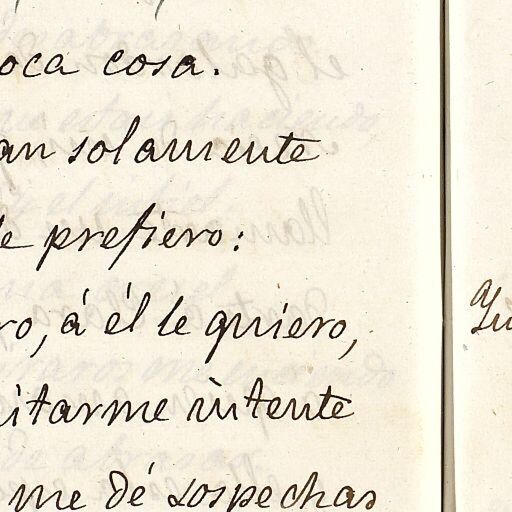 oca cosa.
an solamente
le prefiero:
ro, á él le quiero,
itarme intente
me dé sospechas